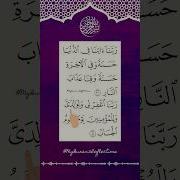 رَبَّنَا ءَاتِنَا فِى ٱلدُّنْيَا
حَسَنَةً وَفِى ٱلْءَاخِرَةِ
حَسَنَةً وَقِنَا عَذَابَ
ٱلنَّارِ
رَبَّنَا ٱغْفِرْ لِى وَلِوَٰلِدَىَّ
وَلِلْمُؤْمِنِينَ يَوْمَ يَقُومُ
ٱلْحِسَابُ